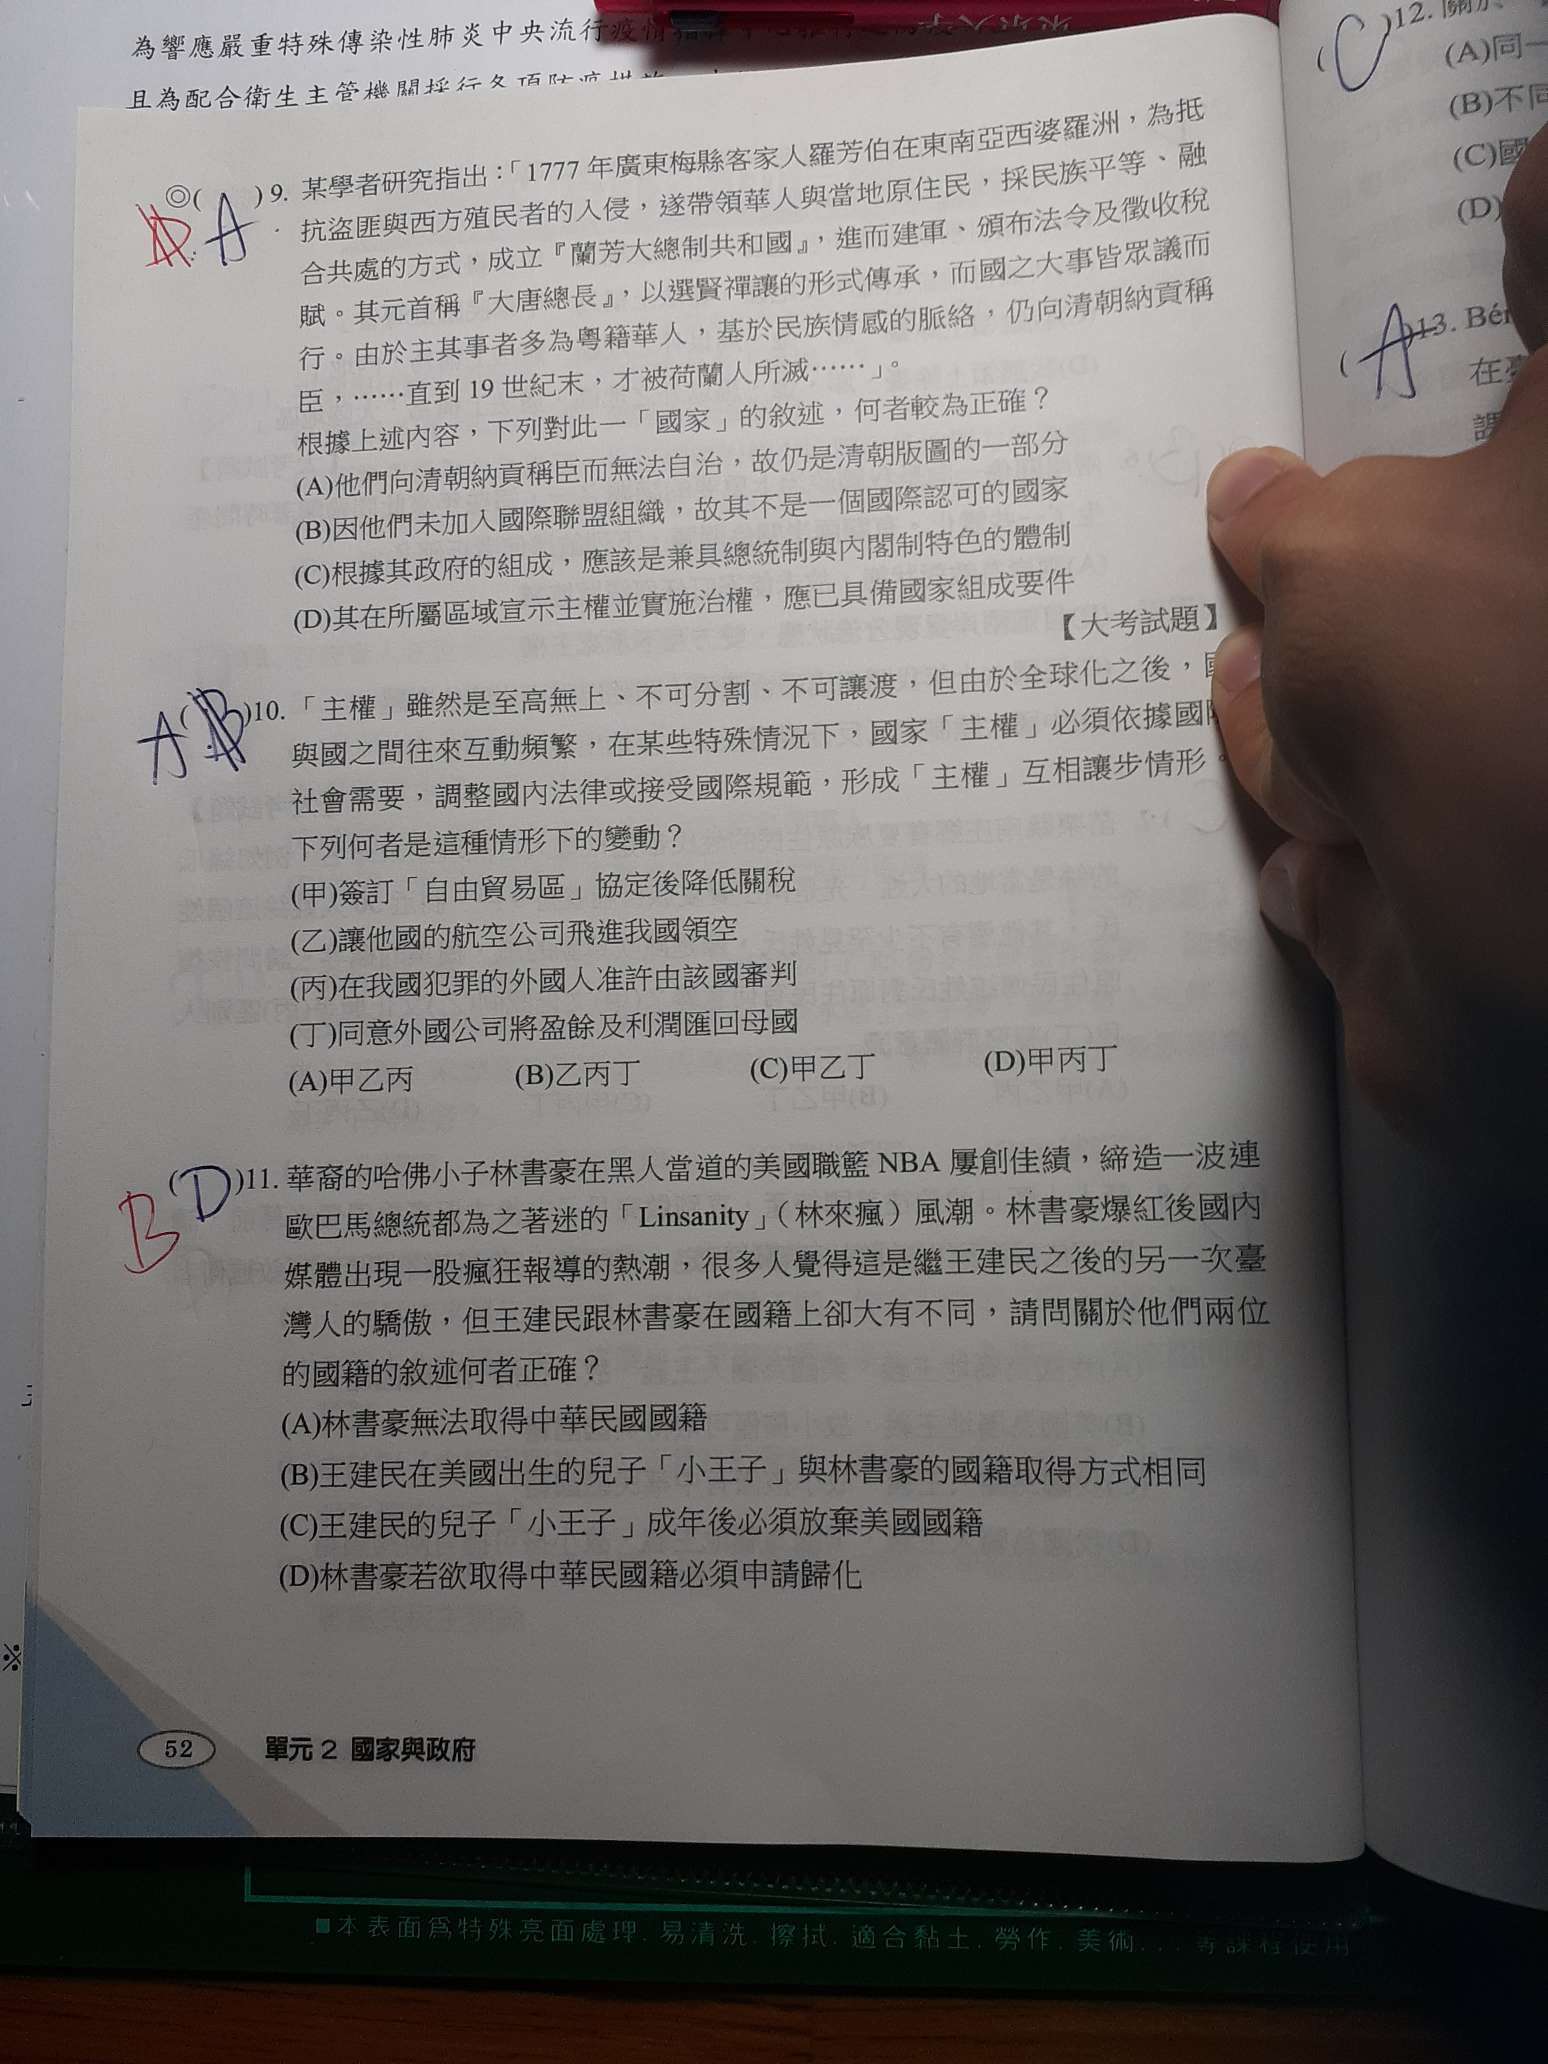 為響應嚴重特殊傳染性肺炎中央流行疫情
且為配合衛生主管機關採行各項防疫措施
◎( ) 9. 某學者研究指出：「1777 年廣東梅縣客家人羅芳伯在東南亞西婆羅洲，為抵
D A
抗盜匪與西方殖民者的入侵，遂帶領華人與當地原住民，採民族平等、融
合共處的方式，成立『蘭芳大總制共和國』，進而建軍、頒布法令及徵收稅
賦。其元首稱『大唐總長』，以選賢禪讓的形式傳承，而國之大事皆眾議而
行。由於主其事者多為粵籍華人，基於民族情感的脈絡，仍向清朝納貢稱
臣，……直到 19 世紀末，才被荷蘭人所滅……」。
根據上述內容，下列對此一「國家」的敘述，何者較為正確？
(A)他們向清朝納貢稱臣而無法自治，故仍是清朝版圖的一部分
(B)因他們未加入國際聯盟組織，故其不是一個國際認可的國家
(C)根據其政府的組成，應該是兼具總統制與內閣制特色的體制
(D)其在所屬區域宣示主權並實施治權，應已具備國家組成要件
【大考試題】
A( B )10. 「主權」雖然是至高無上、不可分割、不可讓渡，但由於全球化之後，國
與國之間往來互動頻繁，在某些特殊情況下，國家「主權」必須依據國際
社會需要，調整國內法律或接受國際規範，形成「主權」互相讓步情形。
下列何者是這種情形下的變動？
(甲)簽訂「自由貿易區」協定後降低關稅
(乙)讓他國的航空公司飛進我國領空
(丙)在我國犯罪的外國人准許由該國審判
(丁)同意外國公司將盈餘及利潤匯回母國
(A)甲乙丙 (B)乙丙丁 (C)甲乙丁 (D)甲丙丁
B ( D )11. 華裔的哈佛小子林書豪在黑人當道的美國職籃 NBA 屢創佳績，締造一波連
歐巴馬總統都為之著迷的「Linsanity」（林來瘋）風潮。林書豪爆紅後國內
媒體出現一股瘋狂報導的熱潮，很多人覺得這是繼王建民之後的另一次臺
灣人的驕傲，但王建民跟林書豪在國籍上卻大有不同，請問關於他們兩位
的國籍的敘述何者正確？
(A)林書豪無法取得中華民國國籍
(B)王建民在美國出生的兒子「小王子」與林書豪的國籍取得方式相同
(C)王建民的兒子「小王子」成年後必須放棄美國國籍
(D)林書豪若欲取得中華民國籍必須申請歸化
52 單元 2 國家與政府
( C )12.
(A)同一
(B)不同
(C)國
(D)
( A )13. Bér
在臺
※
■本表面為特殊亮面處理. 易清洗. 擦拭. 適合黏土. 勞作. 美術... 等課程使用